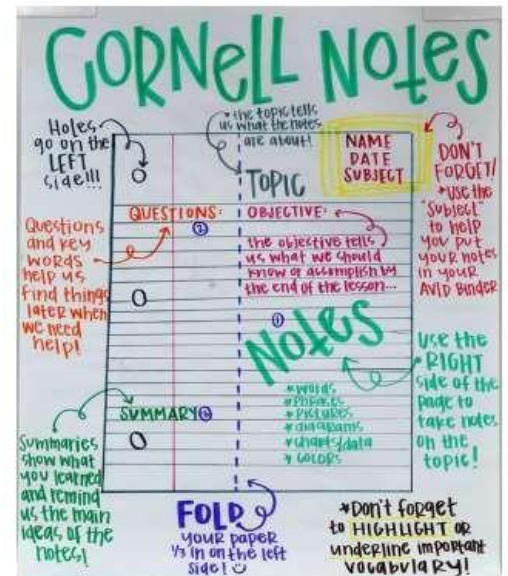 CORNELL NOTES
Holes
go on the
LEFT
side!!!
*the topic tells
us what the notes
are about!
NAME
DATE
SUBJECT
DON'T
FORGET!
*USE the
"SUBJECT"
to help
you put
your notes
in your
AVID Binder
TOPIC
QUESTIONS:
②
OBJECTIVE:
the objective tells
us what we should
know or accomplish by
the end of the lesson...
Questions
and key
words
help us
find things
later when
we need
help!
①
Notes
*words
*phrases
*pictures
*diagrams
*charts/data
*colors
use the
RIGHT
side of the
page to
take notes
on the
topic!
SUMMARY③
Summaries
show what
you learned
and remind
us the main
ideas of the
notes!
FOLD
your paper
1/3 in on the left
side!
*Don't forget
to HIGHLIGHT or
underline important
vocabulary!